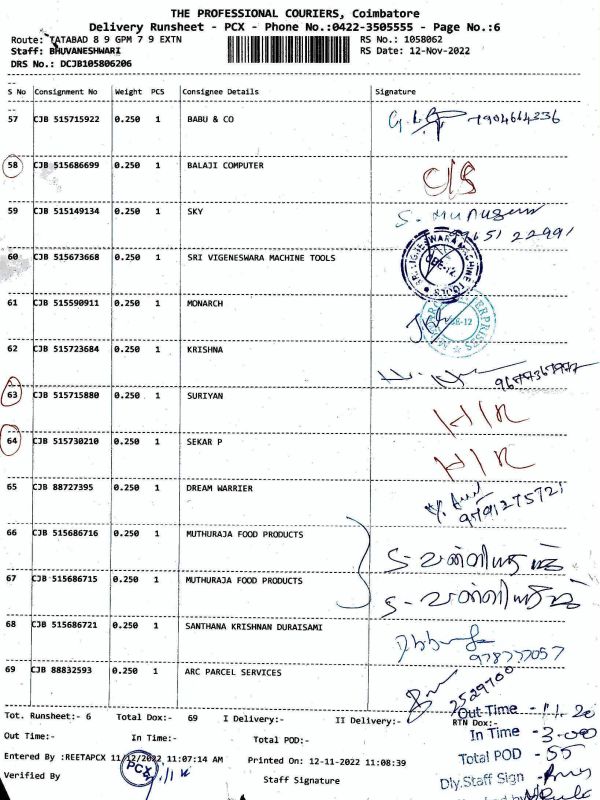 THE PROFESSIONAL COURIERS, Coimbatore
Delivery Runsheet - PCX - Phone No.:0422-3505555 - Page No.:6
Route: TATABAD 8 9 GPM 7 9 EXTN RS No.: 1058062
Staff: BHUVANESHWARI RS Date: 12-Nov-2022
DRS No.: DCJB105806206
S No Consignment No Weight PCS Consignee Details Signature
57 CJB 515715922 0.250 1 BABU & CO 7904664336
58 CJB 515686699 0.250 1 BALAJI COMPUTER C/S
59 CJB 515149134 0.250 1 SKY
60 CJB 515673668 0.250 1 SRI VIGENESWARA MACHINE TOOLS
61 CJB 515590911 0.250 1 MONARCH
62 CJB 515723684 0.250 1 KRISHNA
63 CJB 515715880 0.250 1 SURIYAN
64 CJB 515730210 0.250 1 SEKAR P
65 CJB 88727395 0.250 1 DREAM WARRIER 9791275721
66 CJB 515686716 0.250 1 MUTHURAJA FOOD PRODUCTS
67 CJB 515686715 0.250 1 MUTHURAJA FOOD PRODUCTS
68 CJB 515686721 0.250 1 SANTHANA KRISHNAN DURAISAMI
69 CJB 88832593 0.250 1 ARC PARCEL SERVICES 2529700
Tot. Runsheet:- 6 Total Dox:- 69 I Delivery:- II Delivery:- RTN Dox:-
Out Time - 11.20
Out Time:- In Time:- Total POD:-
In Time - 3.00
Total POD - 55
Entered By :REETAPCX 11/12/2022 11:07:14 AM Printed On: 12-11-2022 11:08:39
Dly.Staff Sign -
Verified By PCX Staff Signature